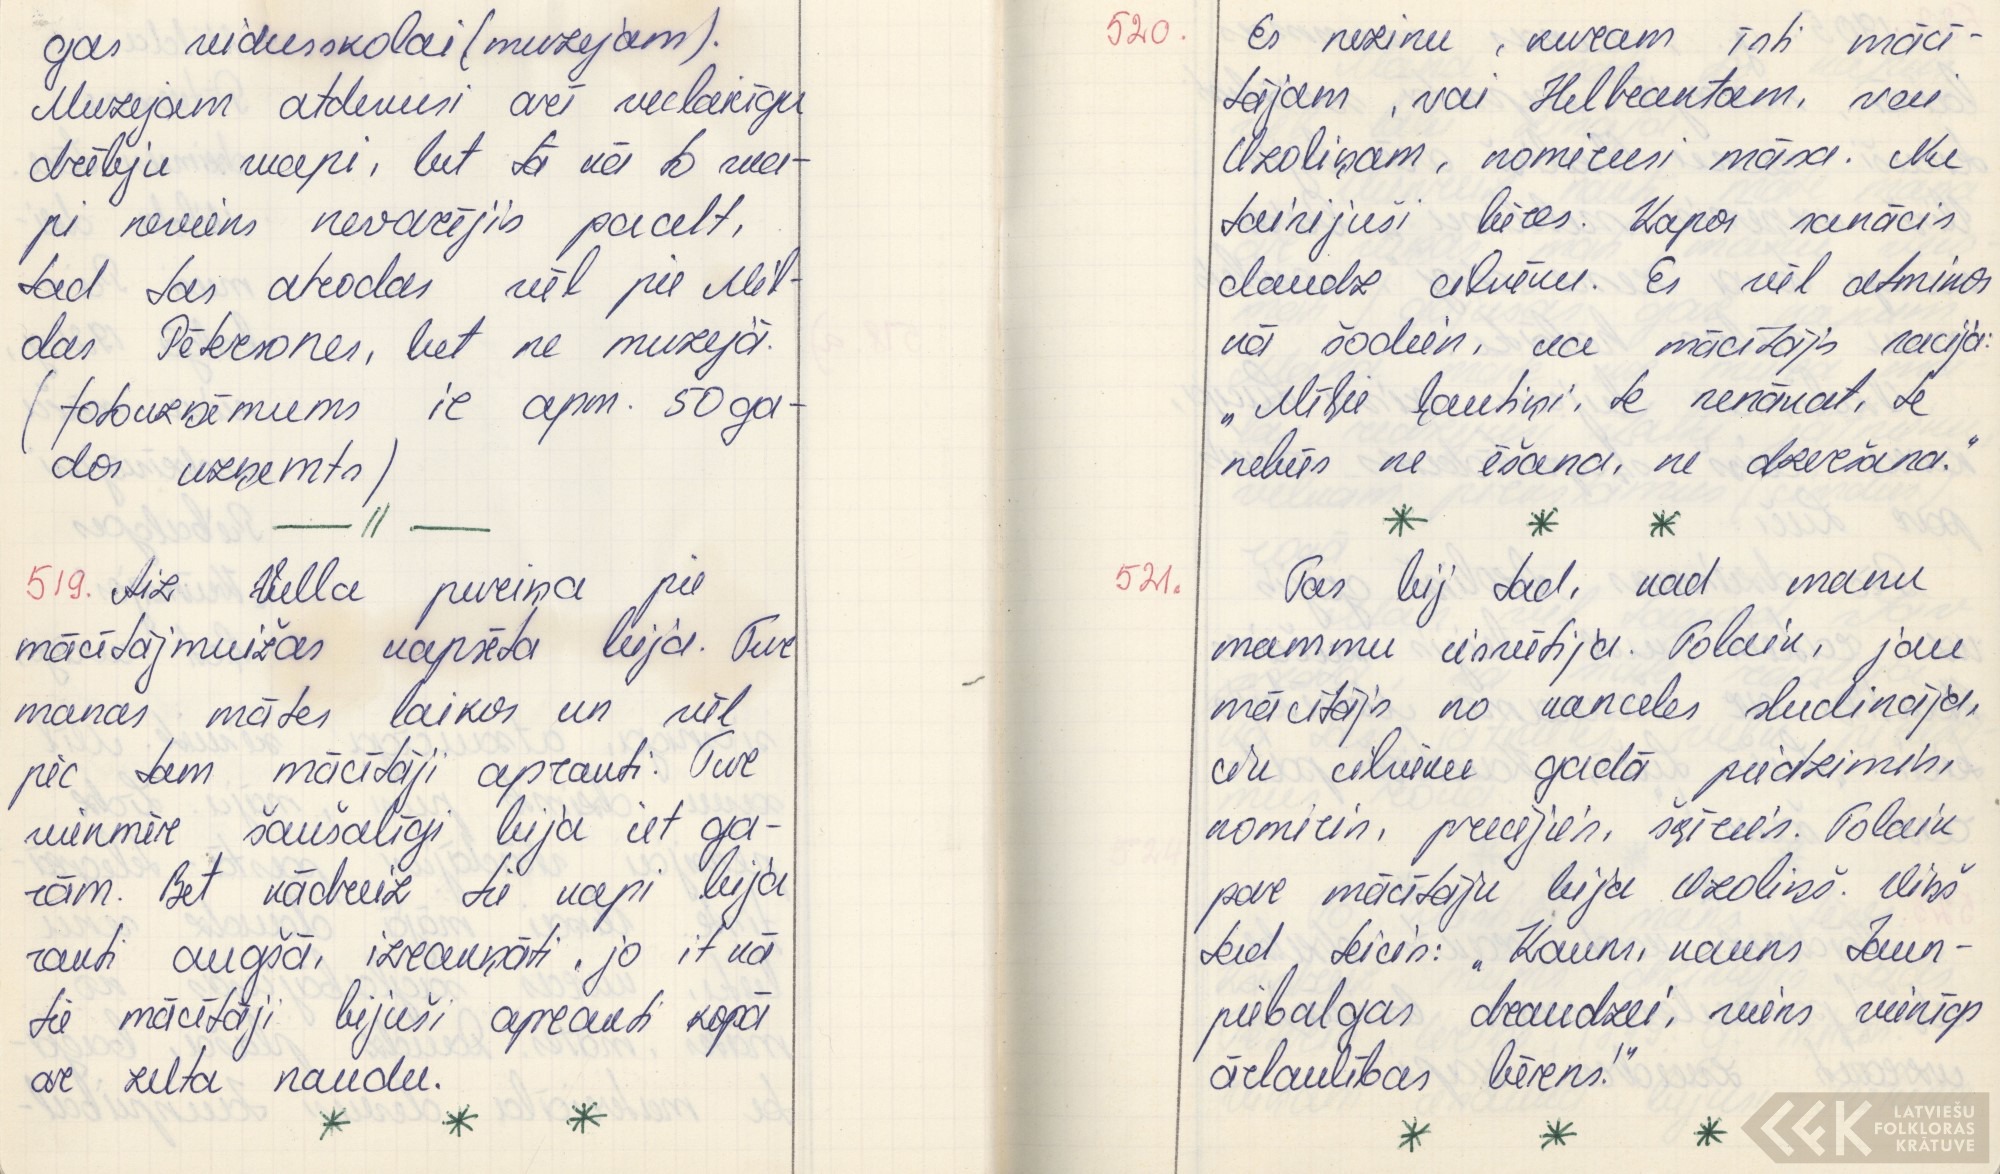 gas vidusskolai (muzejam).
Muzejam atdevusi arī veclaicīgu
drēbju skapi, bet tā kā to ska-
pi neviens nevarējis pacelt,
tad tas atrodas vēl pie Mil-
das Pētersones, bet ne muzejā.
(fotouzņēmums ir apm. 50 ga-
dos uzņemts)
— // —
519. Aiz Vella purviņa pie
mācītājmuižas kapsēta bija. Tur
manas mātes laikos un vēl
pēc tam mācītāji aprakti. Tur
vienmēr šaušalīgi bija iet ga-
rām. Bet kādreiz tie kapi bija
rakti augšā, izrakņāti, jo it kā
tie mācītāji bijuši aprakti kopā
ar zelta naudu.
* * *
520. Es nezinu, kuram īsti mācī-
tājam, vai Helbrantam, vai
Uzoliņam, nomirusi māsa. Nu
taisijuši bēres. Kapos sanācis
daudz cilvēku. Es vēl atminos
kā šodien, ka mācītājs sacīja:
„Mīļie ļautiņi, te nenākat, te
nebūs ne ēšana, ne dzeršana."
* * *
521. Tas bij tad, kad manu
mammu iesvētija. Tolaik, jau
mācītājs no kanceles sludināja,
cik cilvēku gadā piedzimis,
nomiris, precējies, šķīries. Tolaik
par mācītāju bija Uzoliņš. Viņš
tad teicis: „Kauns, kauns Jaun-
piebalgas draudzei, viens vienīgs
ārlaulības bērns!"
* * *
LATVIEŠU
FOLKLORAS
KRĀTUVE